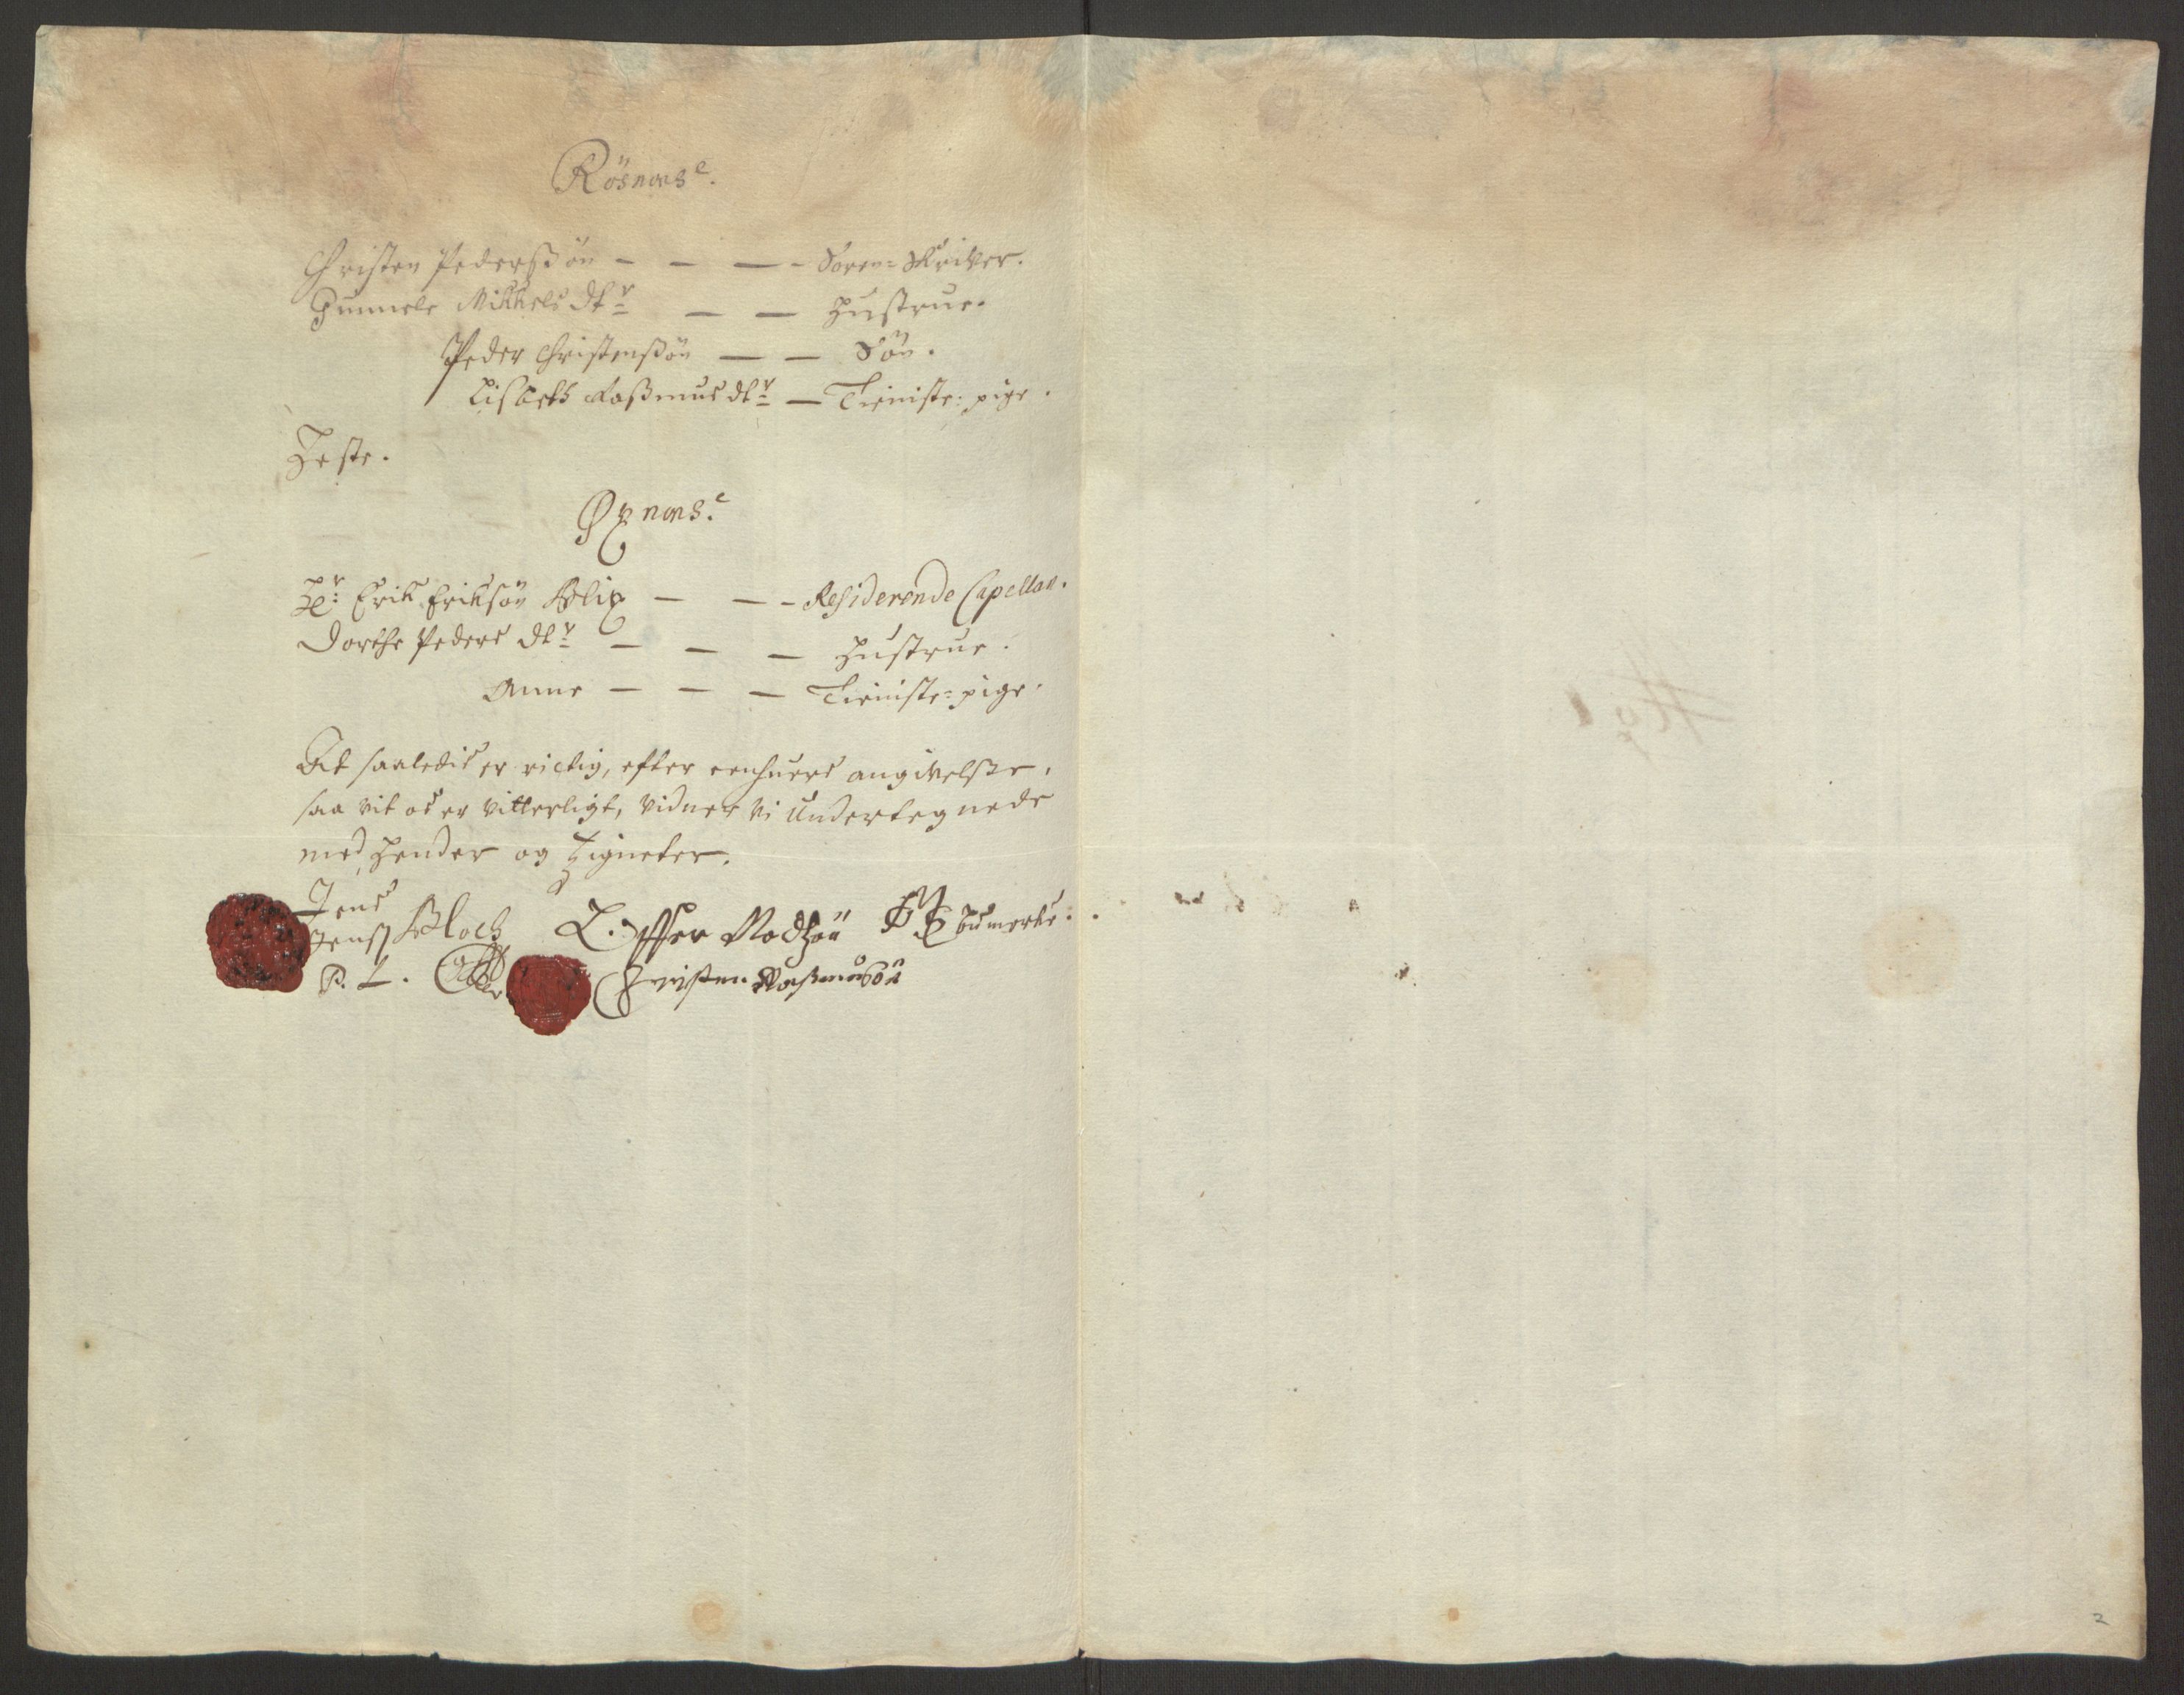 Rösnæs.
Christen Pederßön - - - - Soren-Skriver.
Gunnele Mikkels dtr - - Hustrue.
Peder Christenßön - - Sön.
Lisbeth Raßmus dtr - Tieniste-pige.
Heste.
Øxnæs.
Hr: Erik Erikssön Blix - - - Residerende Capellan.
Dorthe Peders dtr - - - Hustrue.
Anne - - - Tieniste-pige.
At saaledis er rictig, efter eenhuers angivelße,
saa vit os er vitterligt, vidner vi Undertegnede
med Hender og Zigneter.
Jens
Jenss Bloch bumerke.
P. L.
Christen Raßmusön
2